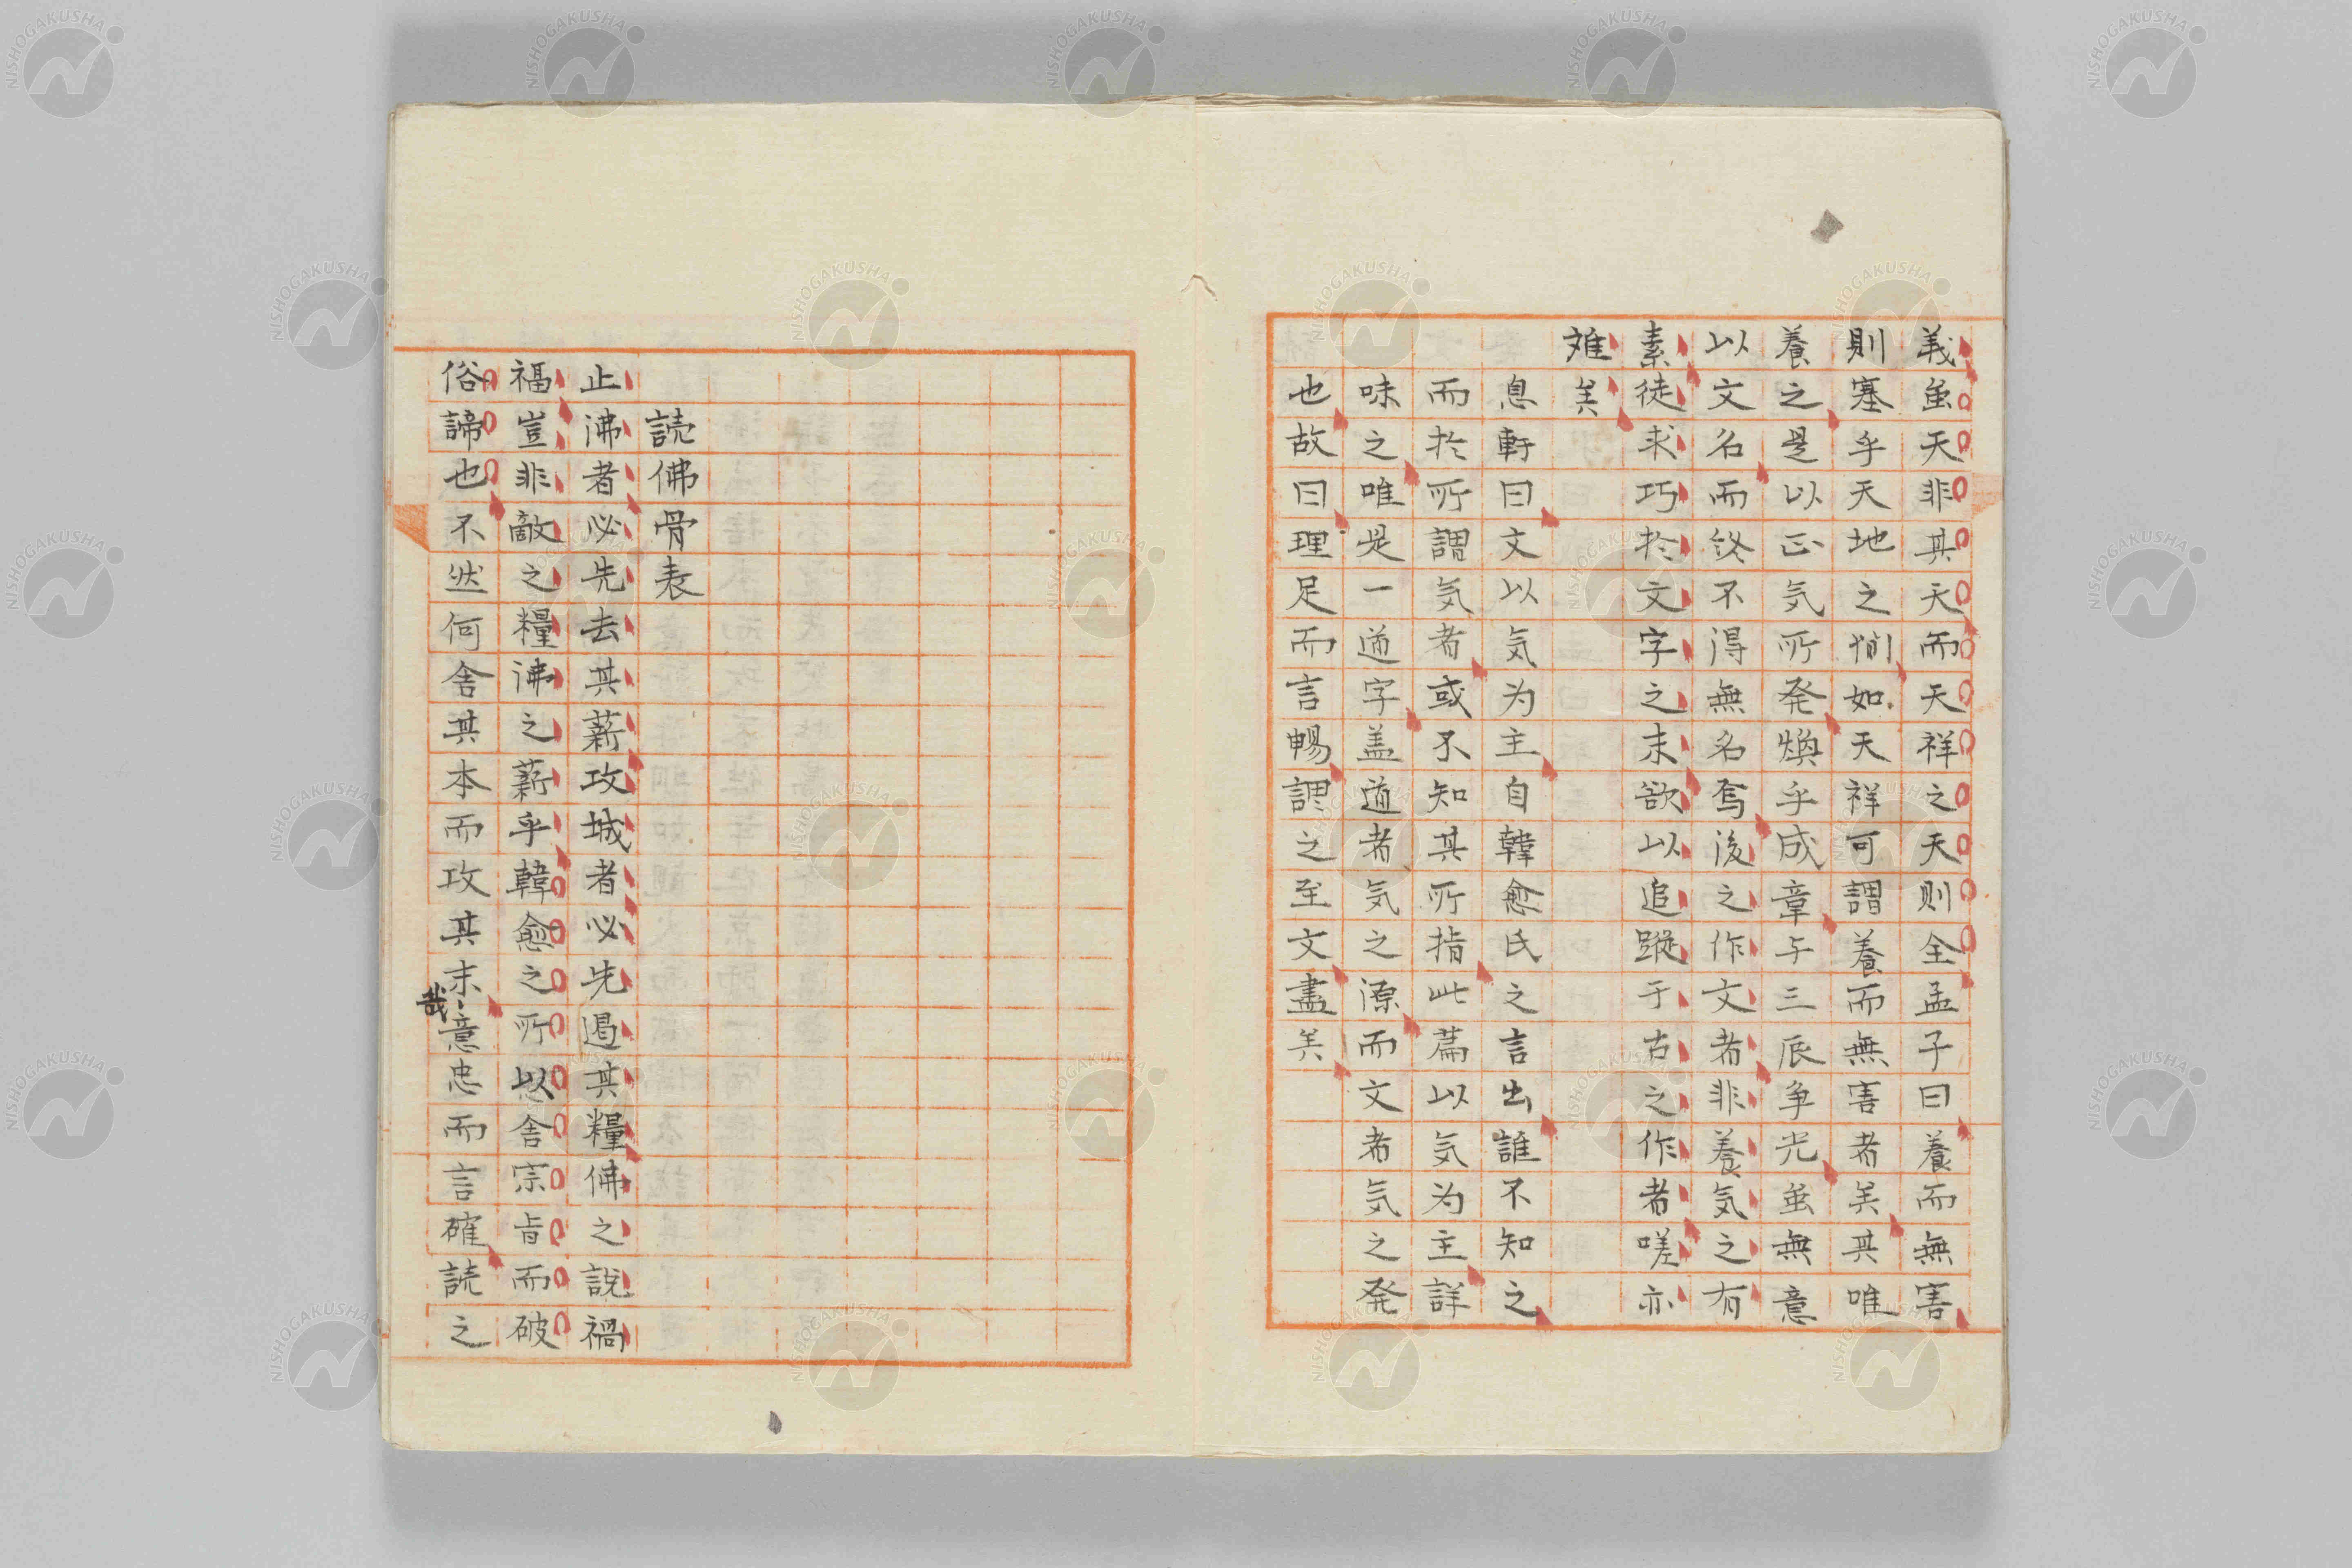 義虽天非其天而天祥之天則全孟子曰養而無害
則塞乎天地之間如天祥可謂養而無害者矣其唯
養之是以正気所発煥乎成章与三辰争光虽無意
以文名而終不得無名焉後之作文者非養気之有
素徒求巧於文字之末欲以追蹤于古之作者嗟亦
難矣
息軒曰文以気为主自韓愈氏之言出誰不知之
而於所謂気者或不知其所指此篇以気为主詳
味之唯是一道字盖道者気之源而文者気之発
也故曰理足而言暢謂之至文盡矣
読佛骨表
止沸者必先去其薪攻城者必先遏其糧佛之説禍
福豈非敵之糧沸之薪乎韓愈之所以舍宗旨而破
俗諦也不然何舍其本而攻其末哉意忠而言確読之
NISHOGAKUSHA